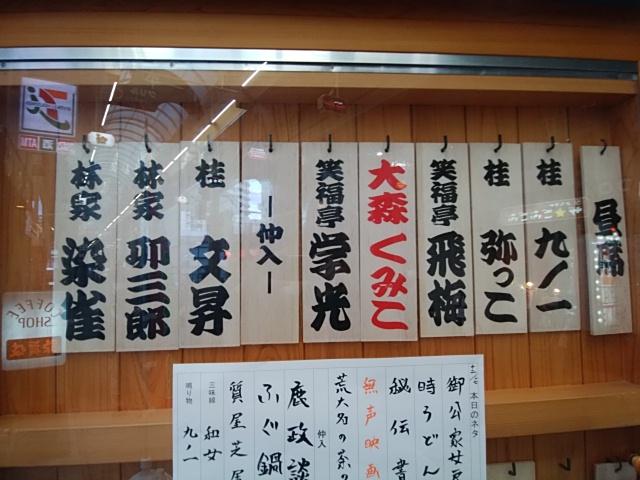 昼席
桂 九ノ一
桂 弥っこ
笑福亭 飛梅
大森 くみこ
笑福亭 学光
―仲入―
桂 文昇
林家 卯三郎
林家 染雀
本日のネタ
御公家女房
時うどん
秘伝書
無声映画
荒大名の茶の
仲入
鹿政談
ふぐ鍋
質屋芝居
三味線 和女
鳴り物 九ノ一
COFFEE
SHOP